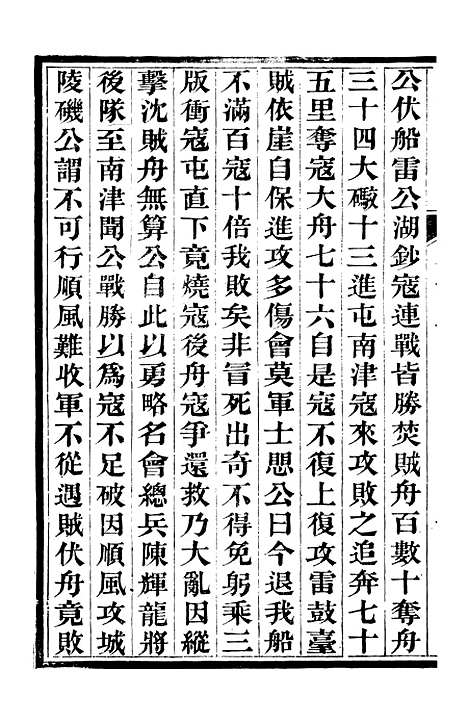 公伏船雷公湖鈔寇連戰皆勝焚賊舟百數十奪舟
三十四大礮十三進屯南津寇來攻敗之追奔七十
五里奪寇大舟七十六自是寇不復上復攻雷鼓臺
賊依崖自保進攻多傷會莫軍士思公曰今退我船
不滿百寇十倍我敗矣非冒死出奇不得免躬乘三
版衝寇屯直下竟燒寇後舟寇爭還救乃大亂因縱
擊沈賊舟無算公自此以勇略名會總兵陳輝龍將
後隊至南津聞公戰勝以爲寇不足破因順風攻城
陵磯公謂不可行順風難收軍不從遇賊伏舟竟敗